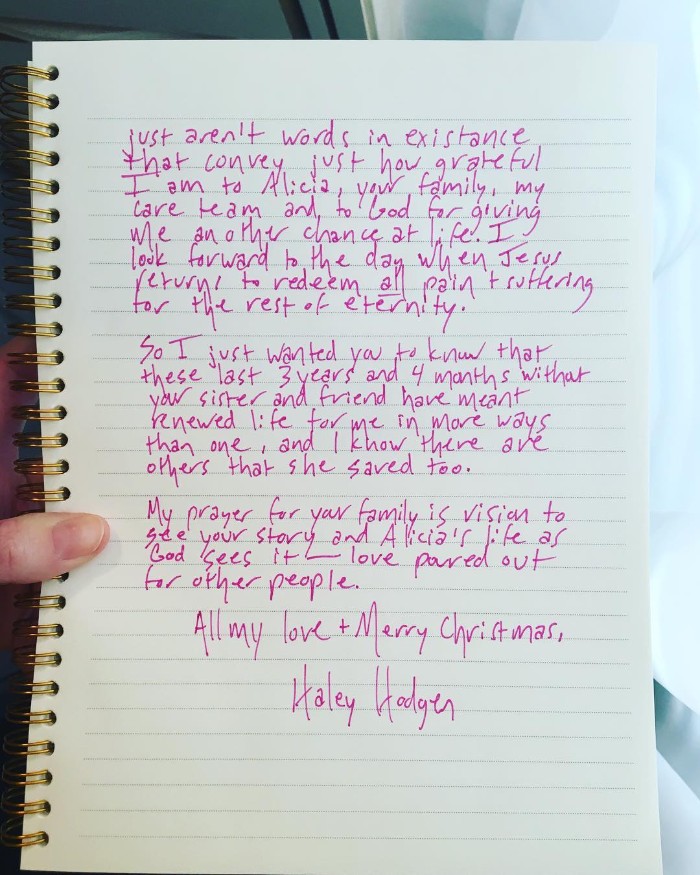 just aren't words in existance
that convey just how grateful
I am to Alicia, your family, my
care team and to God for giving
me another chance at life. I
look forward to the day when Jesus
returns to redeem all pain + suffering
for the rest of eternity.
So I just wanted you to know that
these last 3 years and 4 months without
your sister and friend have meant
renewed life for me in more ways
than one, and I know there are
others that she saved too.
My prayer for your family is vision to
see your story and Alicia's life as
God sees it — love poured out
for other people.
All my love + Merry Christmas,
Haley Hodgen